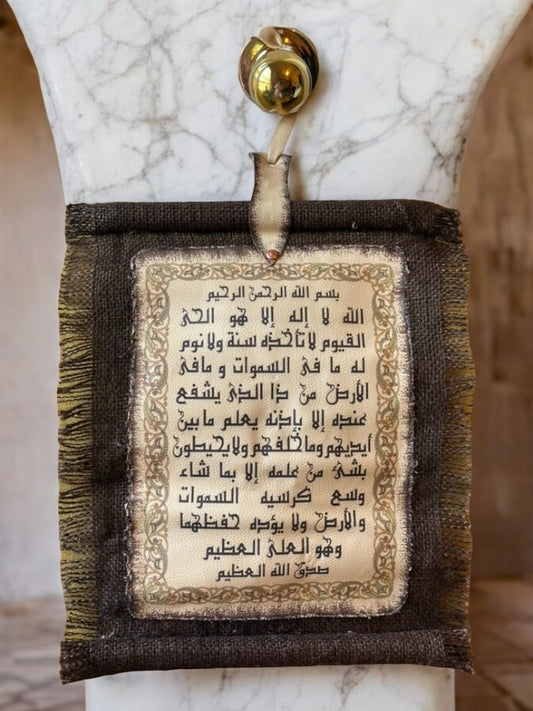 بسم الله الرحمن الرحيم
الله لا إله إلا هو الحى
القيوم لا تأخذه سنة ولا نوم
له ما فى السموات و مافى
الأرض من ذا الذى يشفع
عنده إلا بإذنه يعلم ما بين
أيديهم وما خلفهم ولا يحيطون
بشئ من علمه إلا بما شاء
وسع كرسيه السموات
والأرض ولا يؤده حفظهما
وهو العلى العظيم
صدق الله العظيم